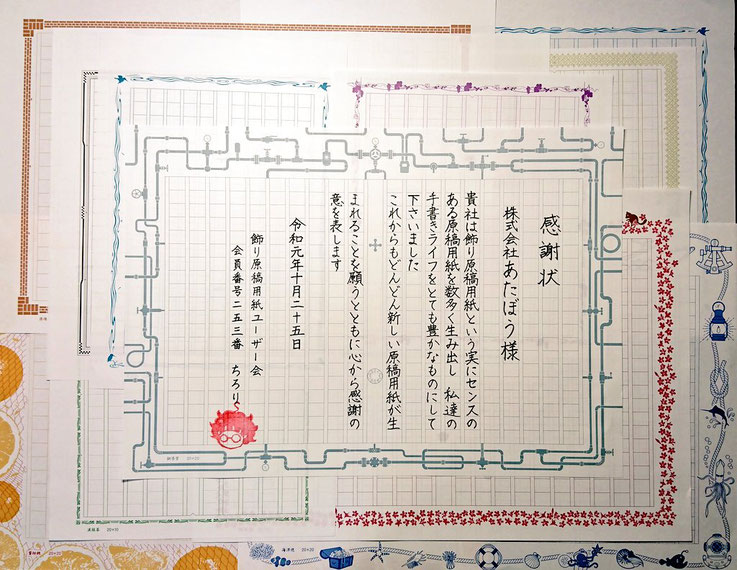 感謝状
株式会社あたぼう様
貴社は飾り原稿用紙という実にセンスの
ある原稿用紙を数多く生み出し 私達の
手書きライフをとても豊かなものにして
下さいました
これからもどんどん新しい原稿用紙が生
まれることを願うとともに心から感謝の
意を表します
令和元年十月二十五日
飾り原稿用紙ユーザー会
会員番号二五三番 ちろり
20×20
20×20
20×20
海洋堂 20×20